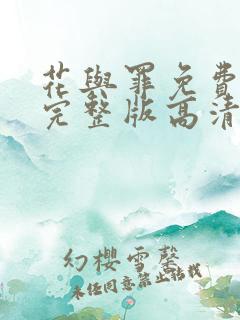 花與罪免費
完整版高清
幻櫻雪馨
未任同意禁止搭載